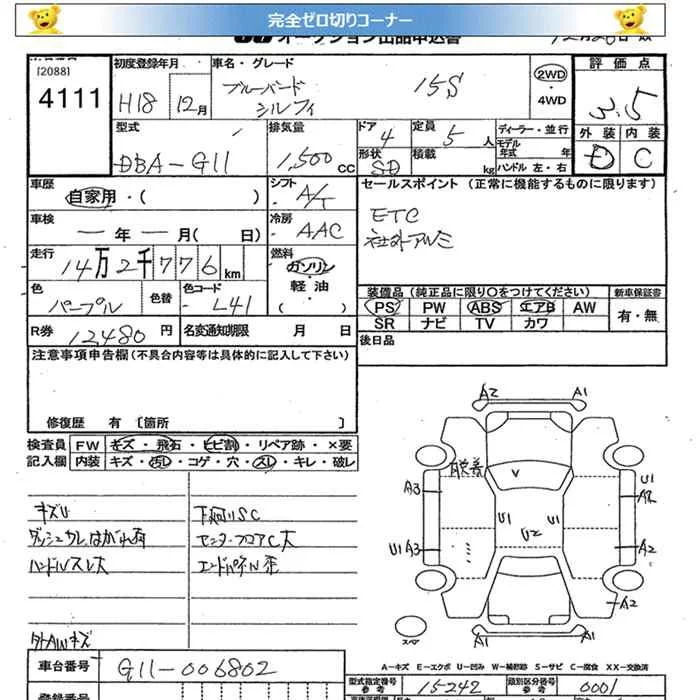 完全ゼロ切りコーナー
オークション出品申込書
[2088]
4111
初度登録年月
H18 12月
車名・グレード
ブルーバード
シルフィ
15S
2WD
・
4WD
評価点
3.5
外装 内装
D C
型式
DBA-G11
排気量
1,500 CC
ドア
4
定員
5 人
形状
SD
積載
kg
ディーラー・並行
モデル
年式 年
ハンドル 左・右
車歴
自家用・( )
シフト
A/T
車検
年 月(日)
冷房
AAC
走行
14万2千776km
燃料
ガソリン
・
軽油
( )
色
パープル
色替
色コード
L41
R券
12480円
名変通知期限 月 日
セールスポイント(正常に機能するものに限ります)
ETC
社外アルミ
装備品(純正品に限り○をつけてください) 新車保証書
PS PW ABS エアB AW
SR ナビ TV カワ
有・無
後日品
注意事項申告欄(不具合内容等は具体的に記入して下さい)
修復歴 有 [箇所 ]
検査員
記入欄
FW キズ・飛石・ヒビ割・リペア跡・×要
内装 キズ・汚れ・コゲ・穴・スレ・キレ・破レ
キズU
ダッシュウレはがれ有
ハンドルスレ大
外AWキズ
下廻りSC
センターフロアC大
エンドパネル歪
A2 A1
V
A3
U1
A2
U1
U2
U1 A3
A2
A2
A1 A1
スペア
A-キズ E-エクボ U-凹み W-補修跡 S-サビ C-腐食 XX-交換済
車台番号
G11-006802
登録番号
型式指定番号
参考
15242
類別区分番号
参考
0001